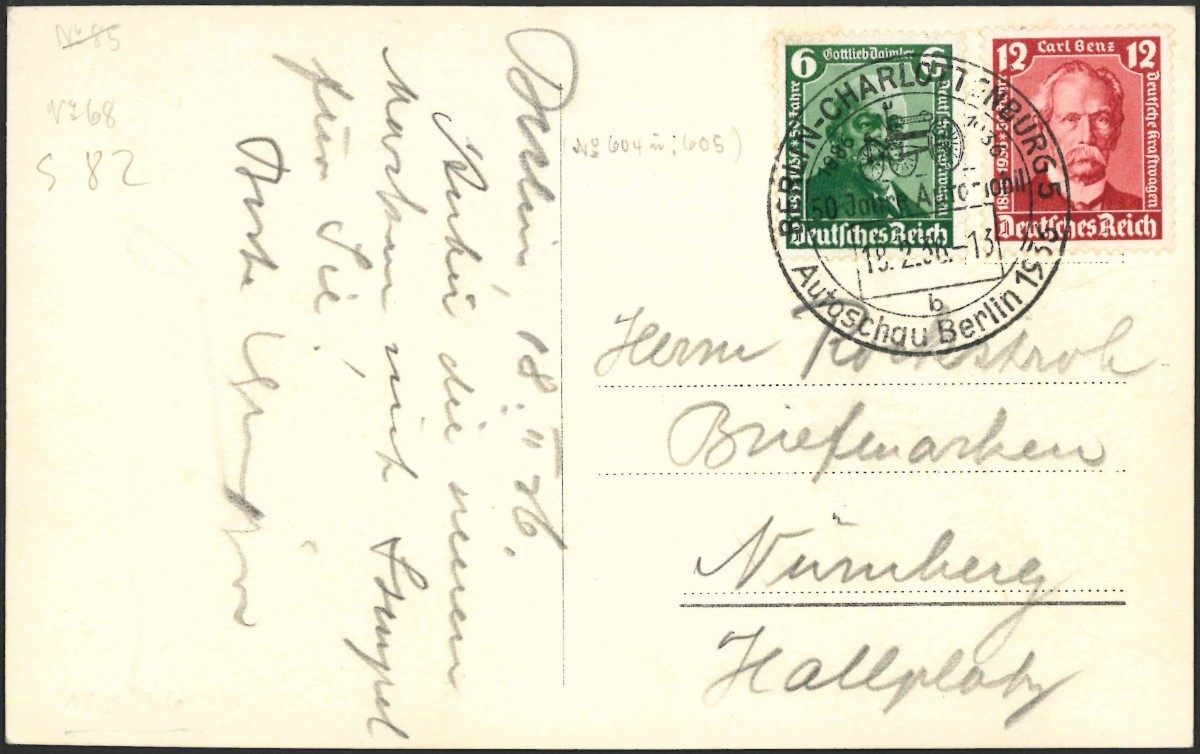 No 85
No 68
S 82
Berlin, 18. II 36.
Anbei die neuen
Marken mit Stempel
für Sie,
Beste
No 604 u. 605)
6 Gottlieb Daimler 6
Deutsches Reich
12 Carl Benz 12
Deutsche Kraftwagen
Deutsches Reich
BERLIN-CHARLOTTENBURG 5
1886 1936
50 Jahre Automobil
18.2.36.-13
b
Autoschau Berlin 1936
Herrn
Briefmarken
Nürnberg
Hallplatz